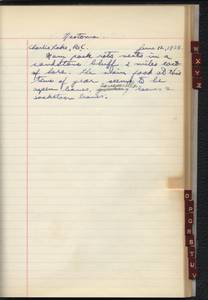 Neotoma
Charlie Lake, B.C. June 12, 1938
Many pack rats nests in a
sandstone bluff 2 miles east
of here. The main food at this
time of year seems to be
aspen leaves, leaves &
saskatoon leaves.
W
X
Y
Z
O
P
Q
R
S
T
U
V